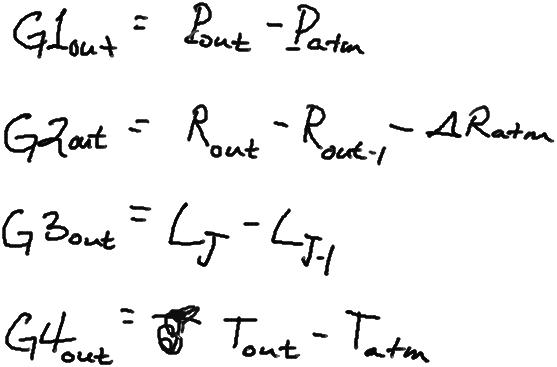 G1out = Pout - Patm
G2out = Rout - Rout-1 - ΔRatm
G3out = LJ - LJ-1
G4out = Tout - Tatm